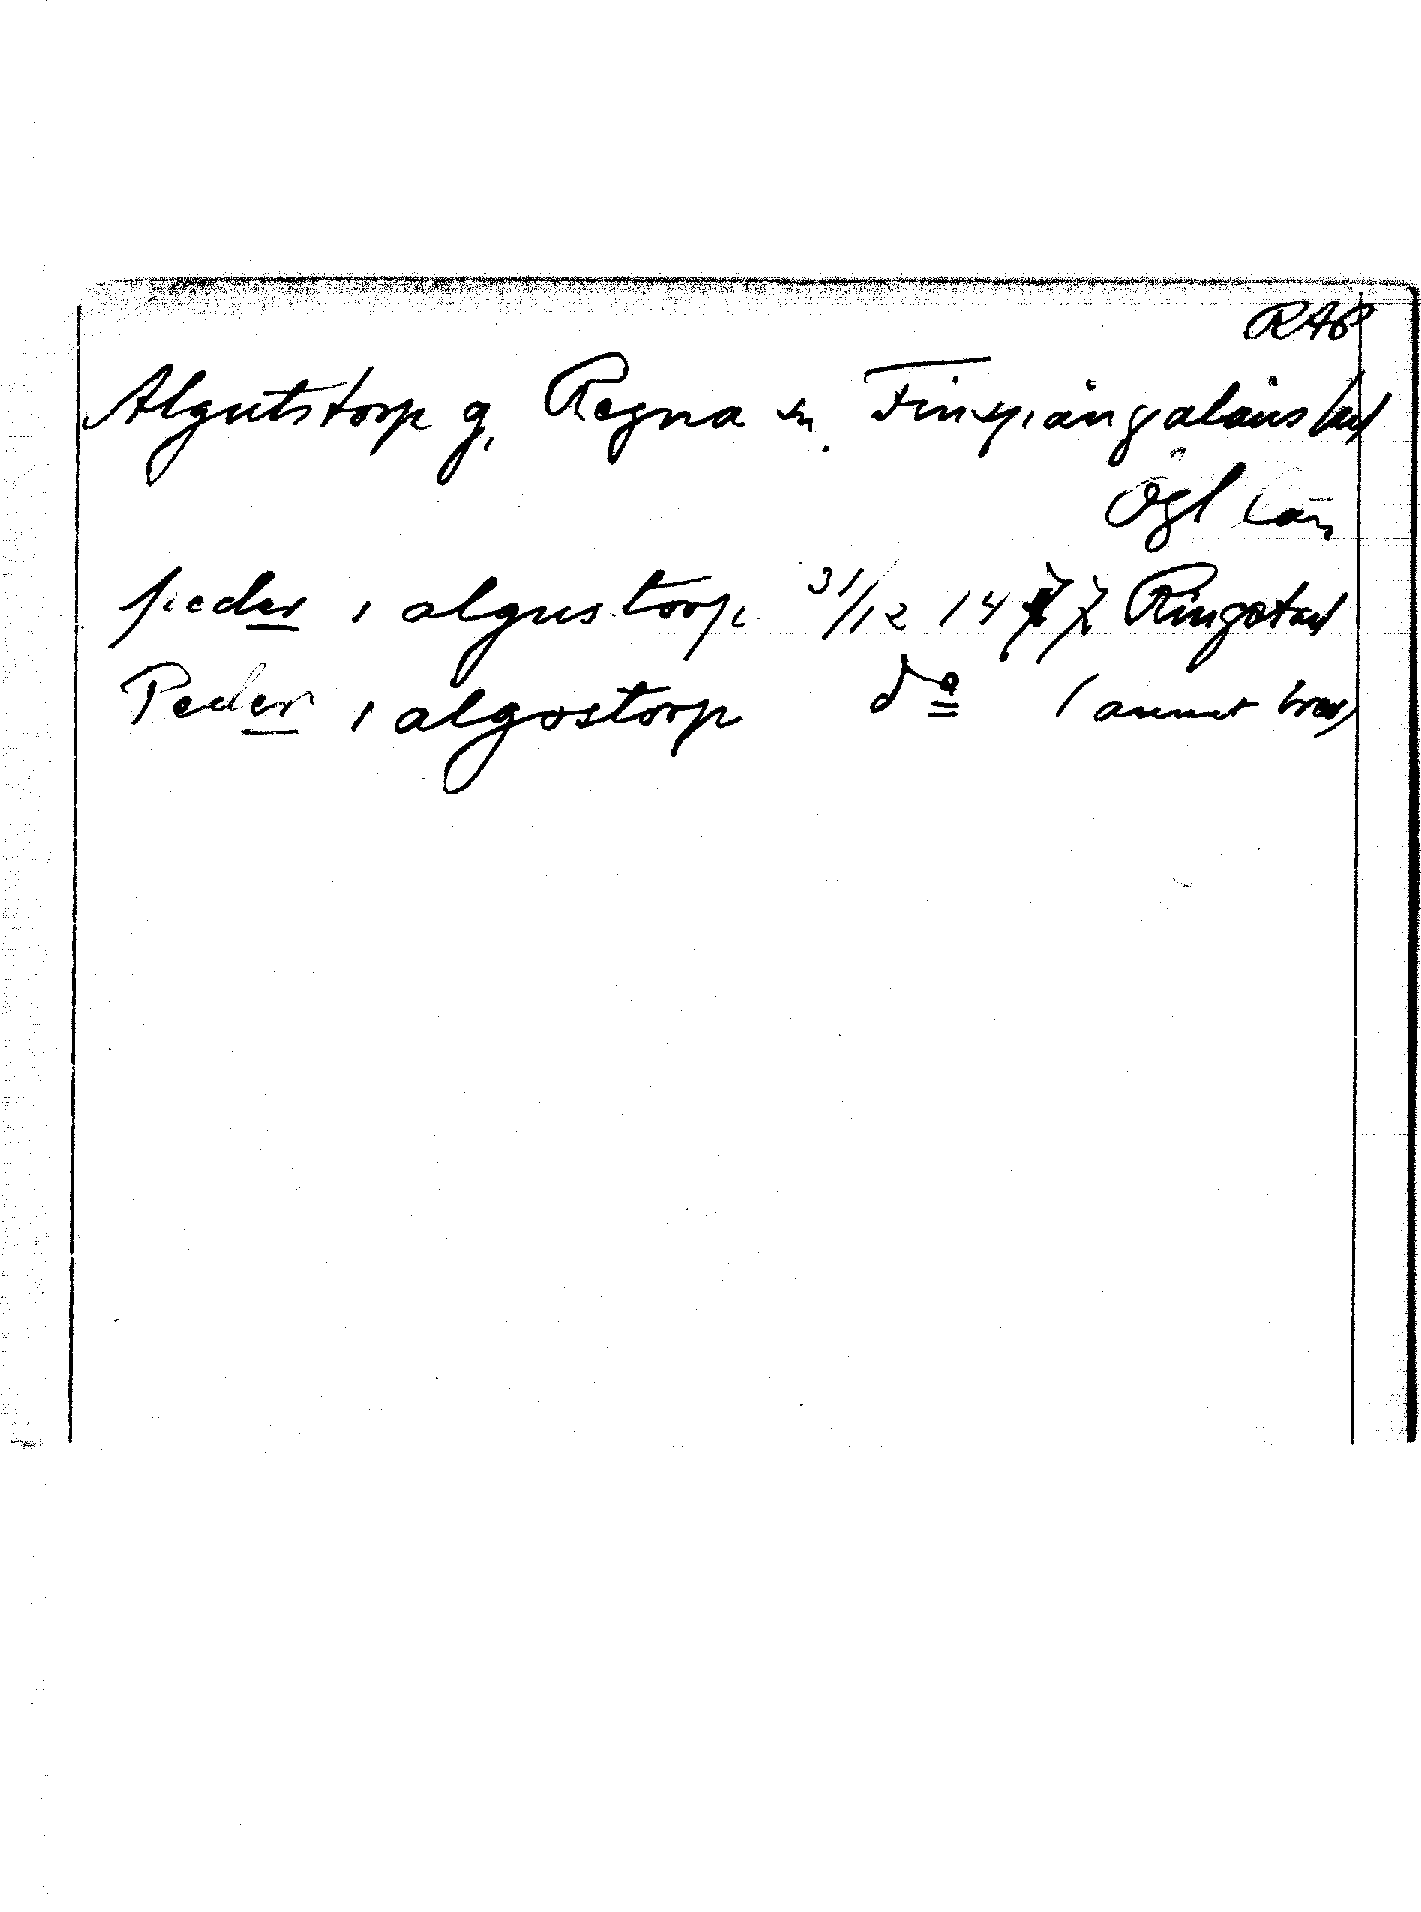 RAP
Algutstorp g. Regna sn. Finspångaläns hd
Ögl län
peder i algustorp 31/12 1477 Ringstad
Peder i algostorp do (annat brev)